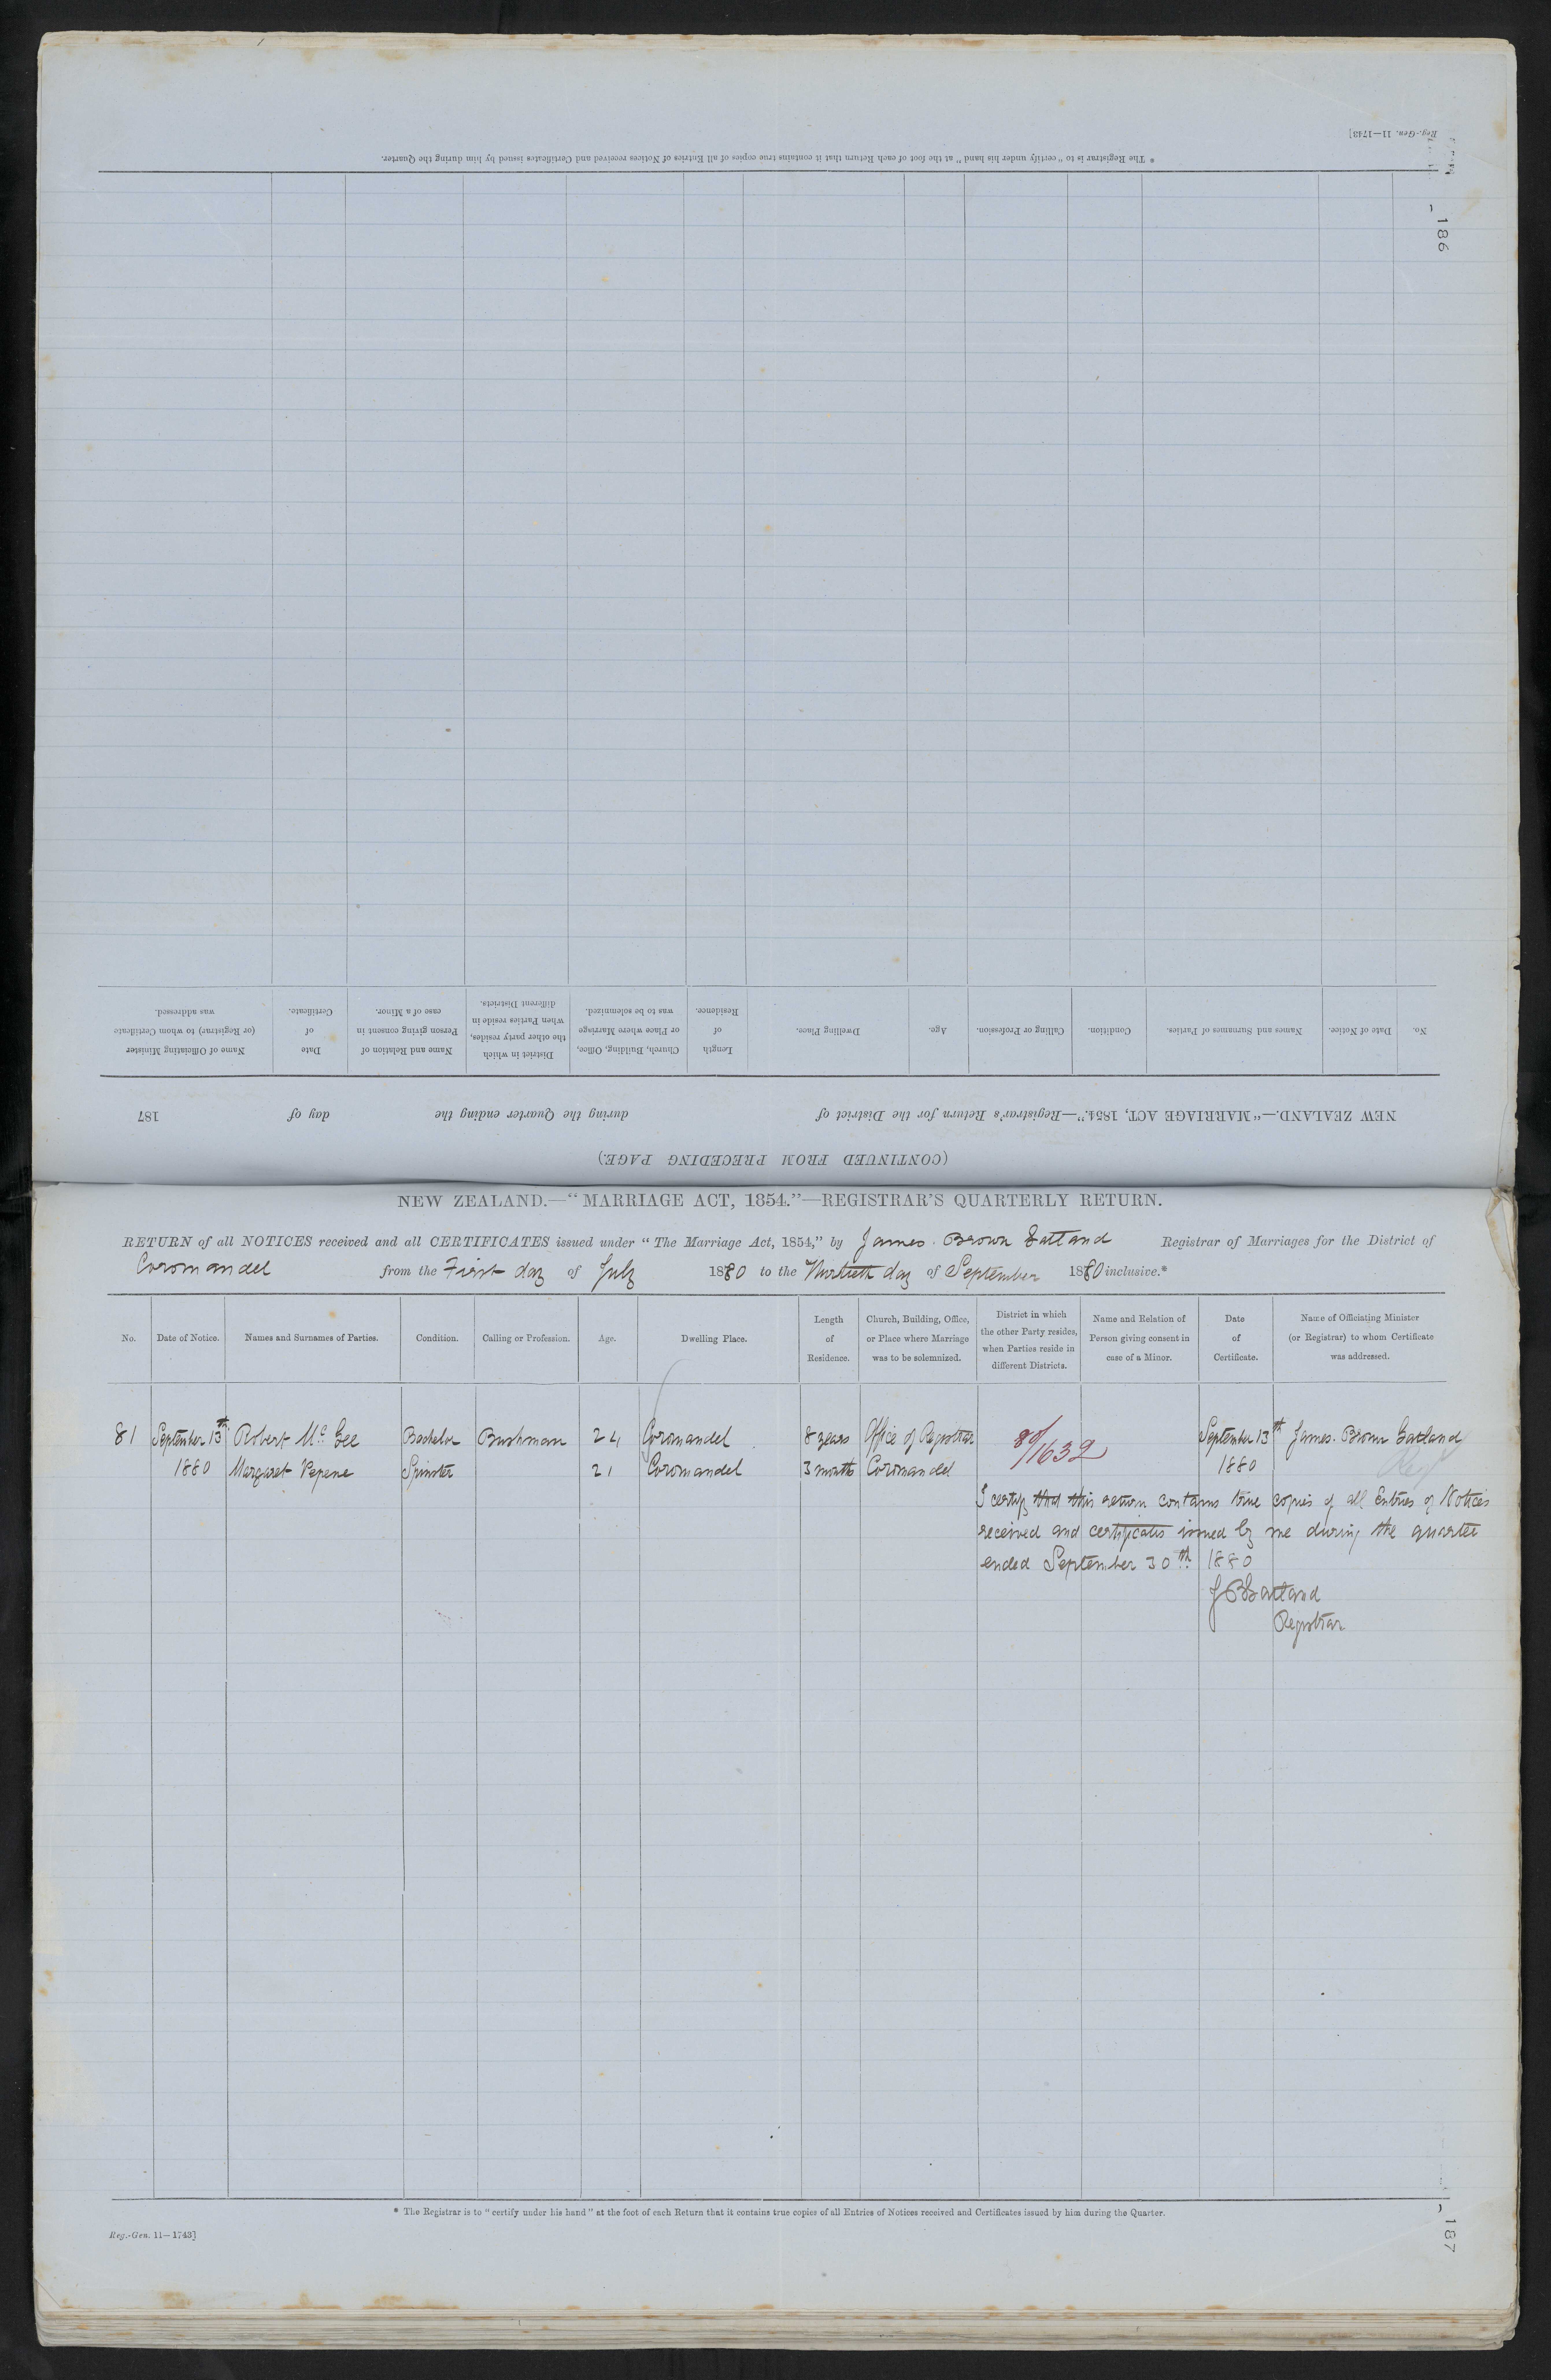 Reg.-Gen. 11—1743]
* The Registrar is to "certify under his hand" at the foot of each Return that it contains true copies of all Entries of Notices received and Certificates issued by him during the Quarter.
186
No. Date of Notice. Names and Surnames of Parties. Condition. Calling or Profession. Age. Dwelling Place. Length of Residence. Church, Building, Office, or Place where Marriage was to be solemnized. District in which the other party resides, when Parties reside in different Districts. Name and Relation of Person giving consent in case of a Minor. Date of Certificate. Name of Officiating Minister (or Registrar) to whom Certificate was addressed.
NEW ZEALAND.—"MARRIAGE ACT, 1854."—Registrar's Return for the District of during the Quarter ending the day of 187
(CONTINUED FROM PRECEDING PAGE.)
NEW ZEALAND.—"MARRIAGE ACT, 1854."—REGISTRAR'S QUARTERLY RETURN.
RETURN of all NOTICES received and all CERTIFICATES issued under "The Marriage Act, 1854," by James Brown Gatland Registrar of Marriages for the District of
Coromandel from the First day of July 1880 to the Thirtieth day of September 1880 inclusive.*
No. Date of Notice. Names and Surnames of Parties. Condition. Calling or Profession. Age. Dwelling Place. Length of Residence. Church, Building, Office, or Place where Marriage was to be solemnized. District in which the other Party resides, when Parties reside in different Districts. Name and Relation of Person giving consent in case of a Minor. Date of Certificate. Name of Officiating Minister (or Registrar) to whom Certificate was addressed.
81 September 13th Robert Mc Gee Bachelor Bushman 24 Coromandel 8 years Office of Registrar 80/1632 September 13th James Brown Gatland
1880 Margaret Pepene Spinster 21 Coromandel 3 months Coromandel 1880
I certify that this return contains true copies of all Entries of Notices
received and certificates issued by me during the quarter
ended September 30th 1880
J B Gatland
Registrar
* The Registrar is to "certify under his hand" at the foot of each Return that it contains true copies of all Entries of Notices received and Certificates issued by him during the Quarter.
Reg.-Gen. 11—1743]
187